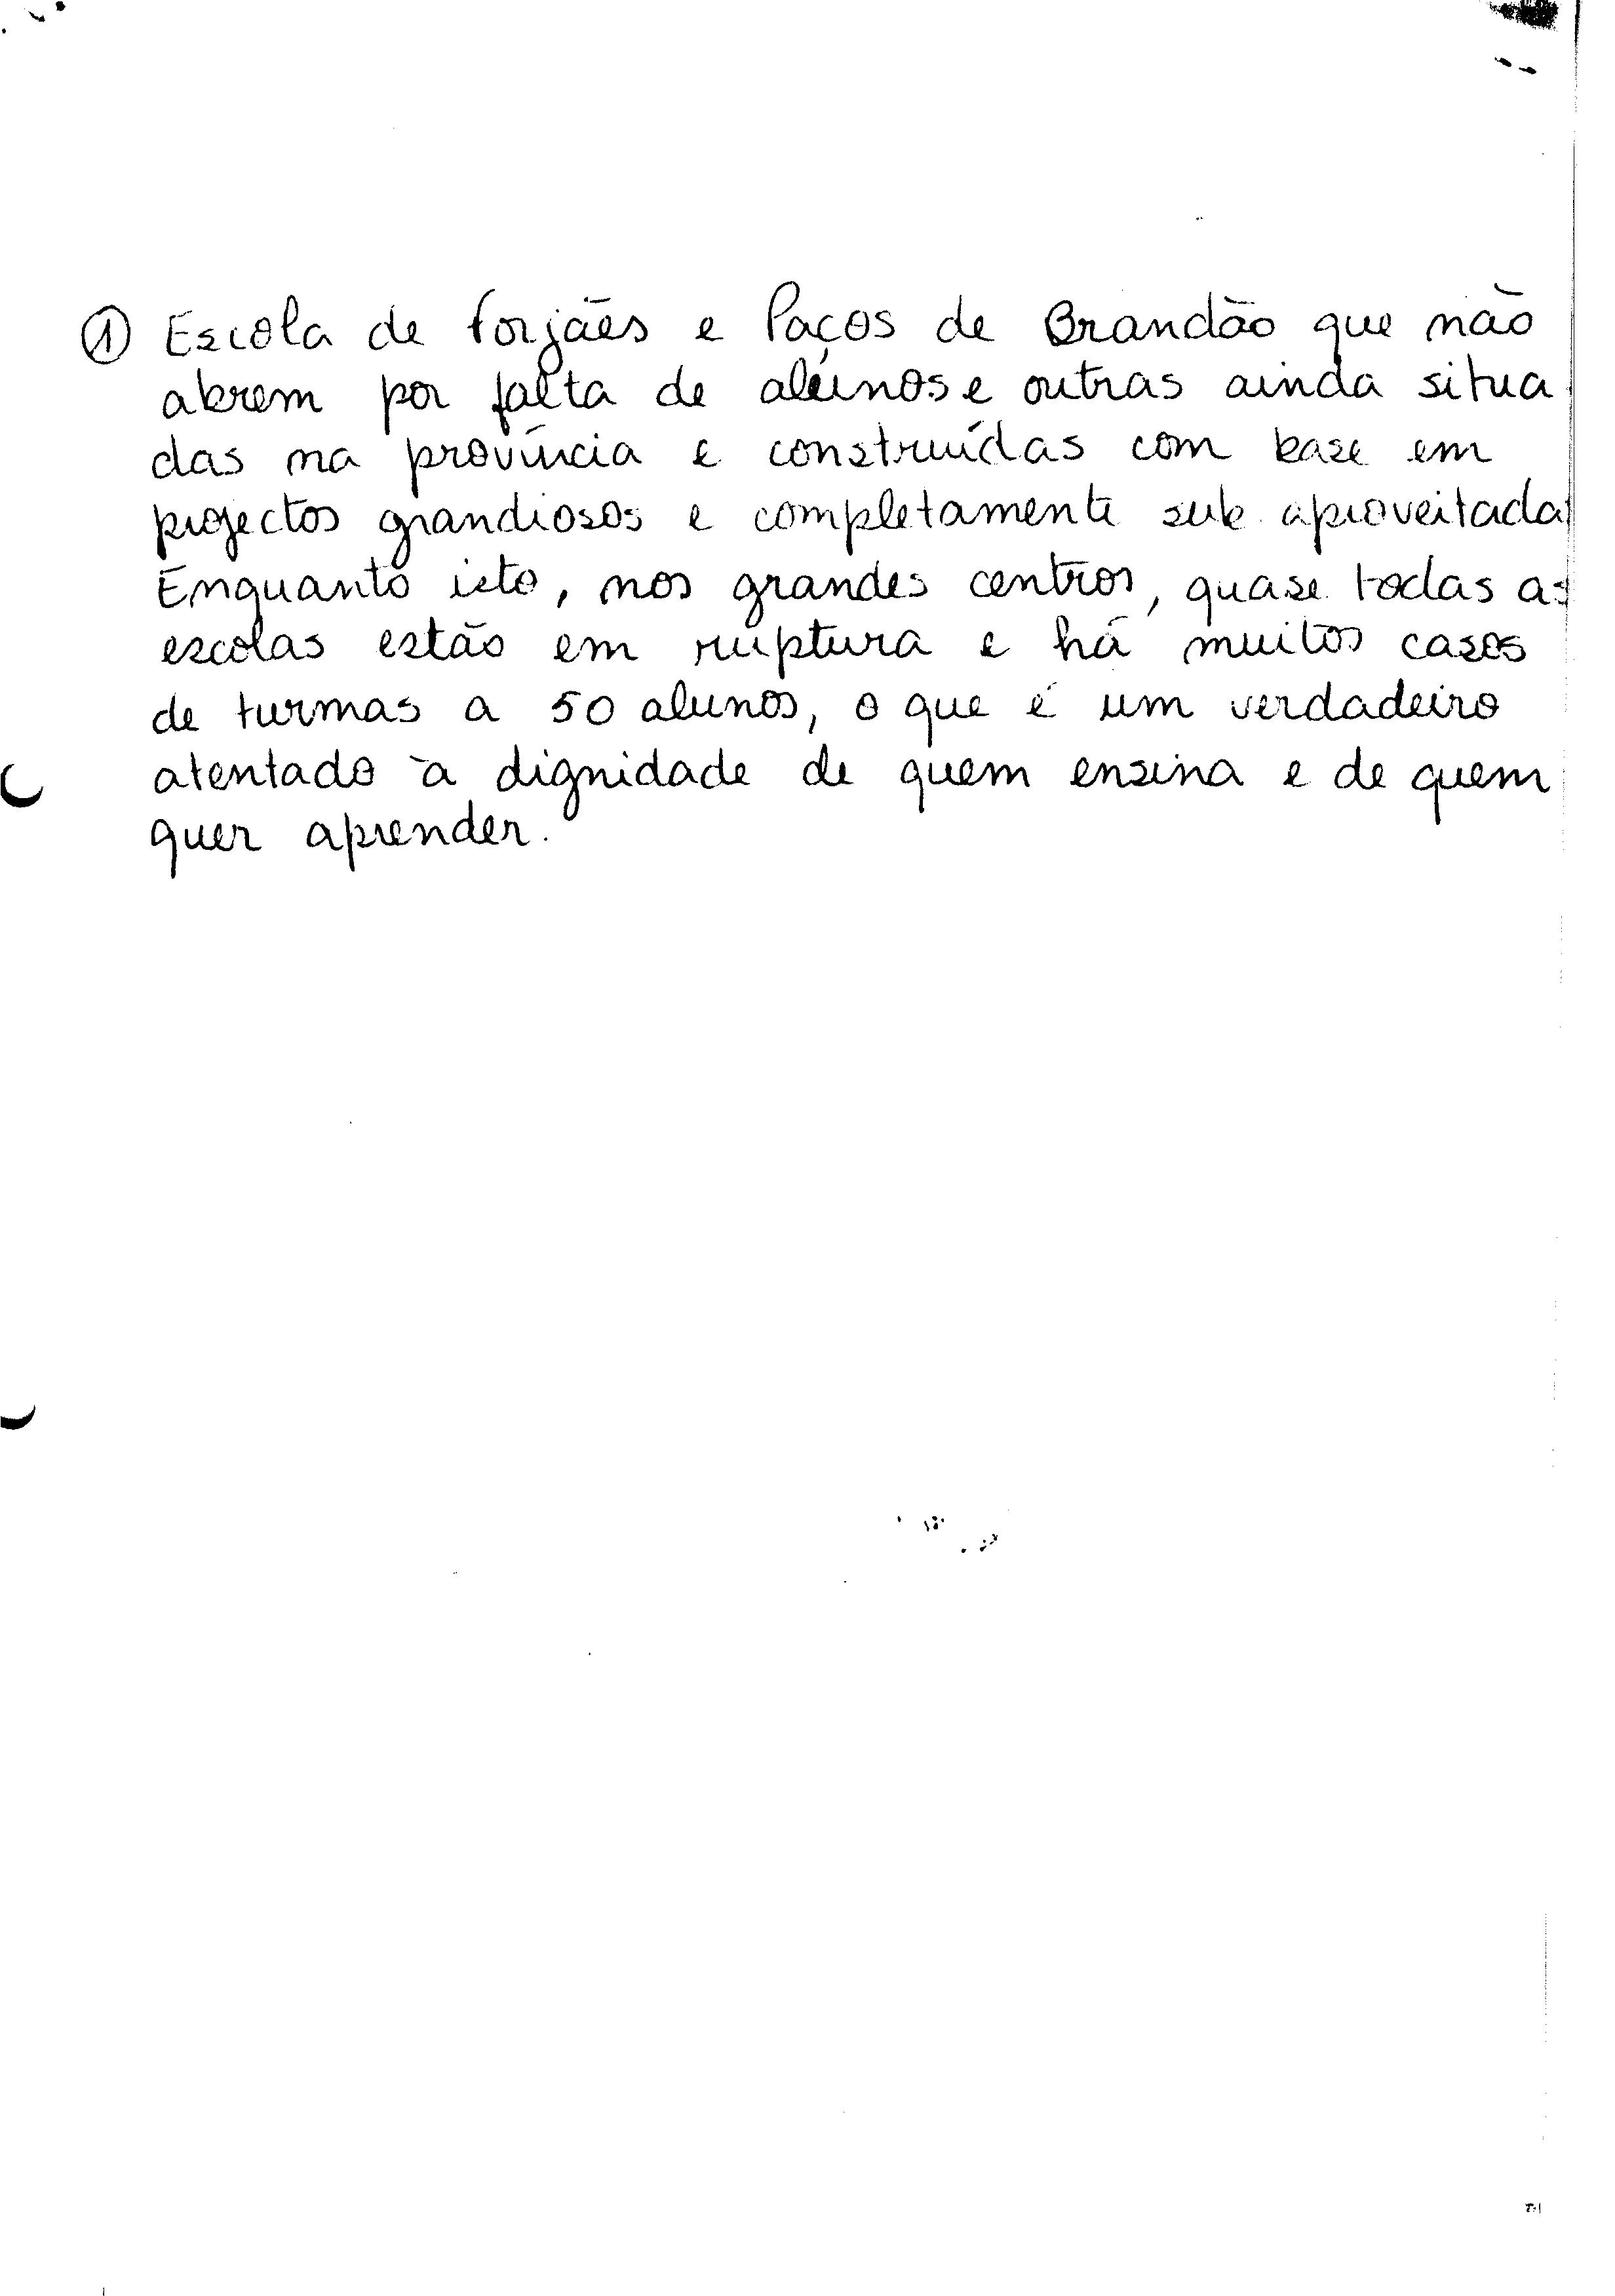 ① Escola de Forjães e Paços de Brandão que não
abrem por falta de alunos e outras ainda situa
das na província e construídas com base em
projectos grandiosos e completamente sub aproveitadas
Enquanto isto, nos grandes centros, quase todas as
escolas estão em ruptura e há muitos casos
de turmas a 50 alunos, o que é um verdadeiro
atentado à dignidade de quem ensina e de quem
quer aprender.